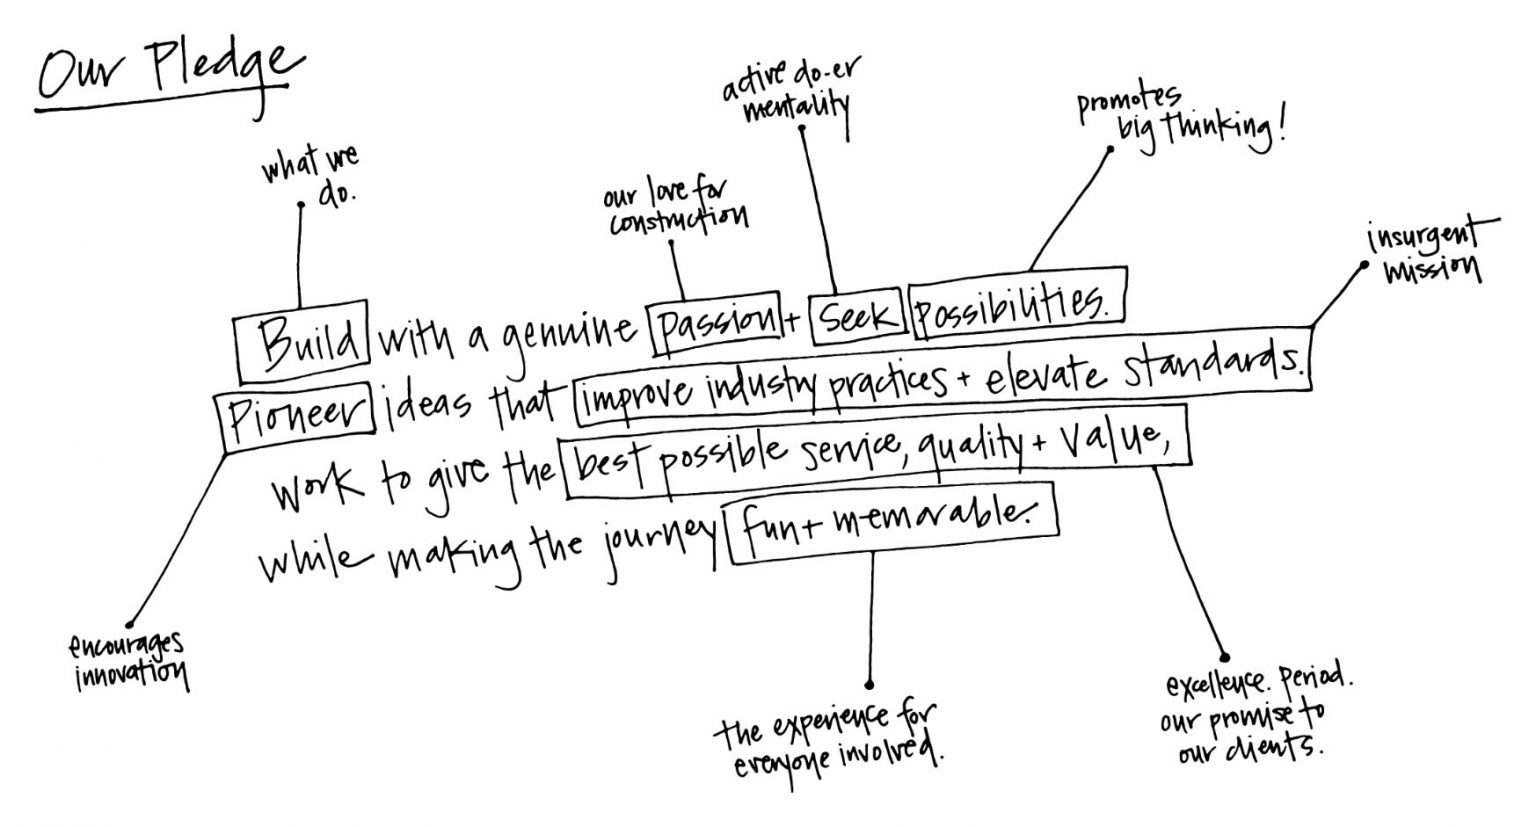 Our Pledge
active do-er
mentality
promotes
big thinking!
what we
do.
our love for
construction
insurgent
mission
Build with a genuine passion + seek possibilities.
Pioneer ideas that improve industry practices + elevate standards.
work to give the best possible service, quality + value,
while making the journey fun + memorable.
encourages
innovation
the experience for
everyone involved.
excellence. period.
our promise to
our clients.